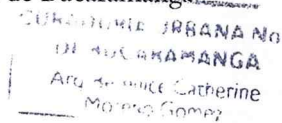 de Bucaramanga
CURADURIA URBANA No
DE BUCARAMANGA
Arq Catherine
Moreno Gomez